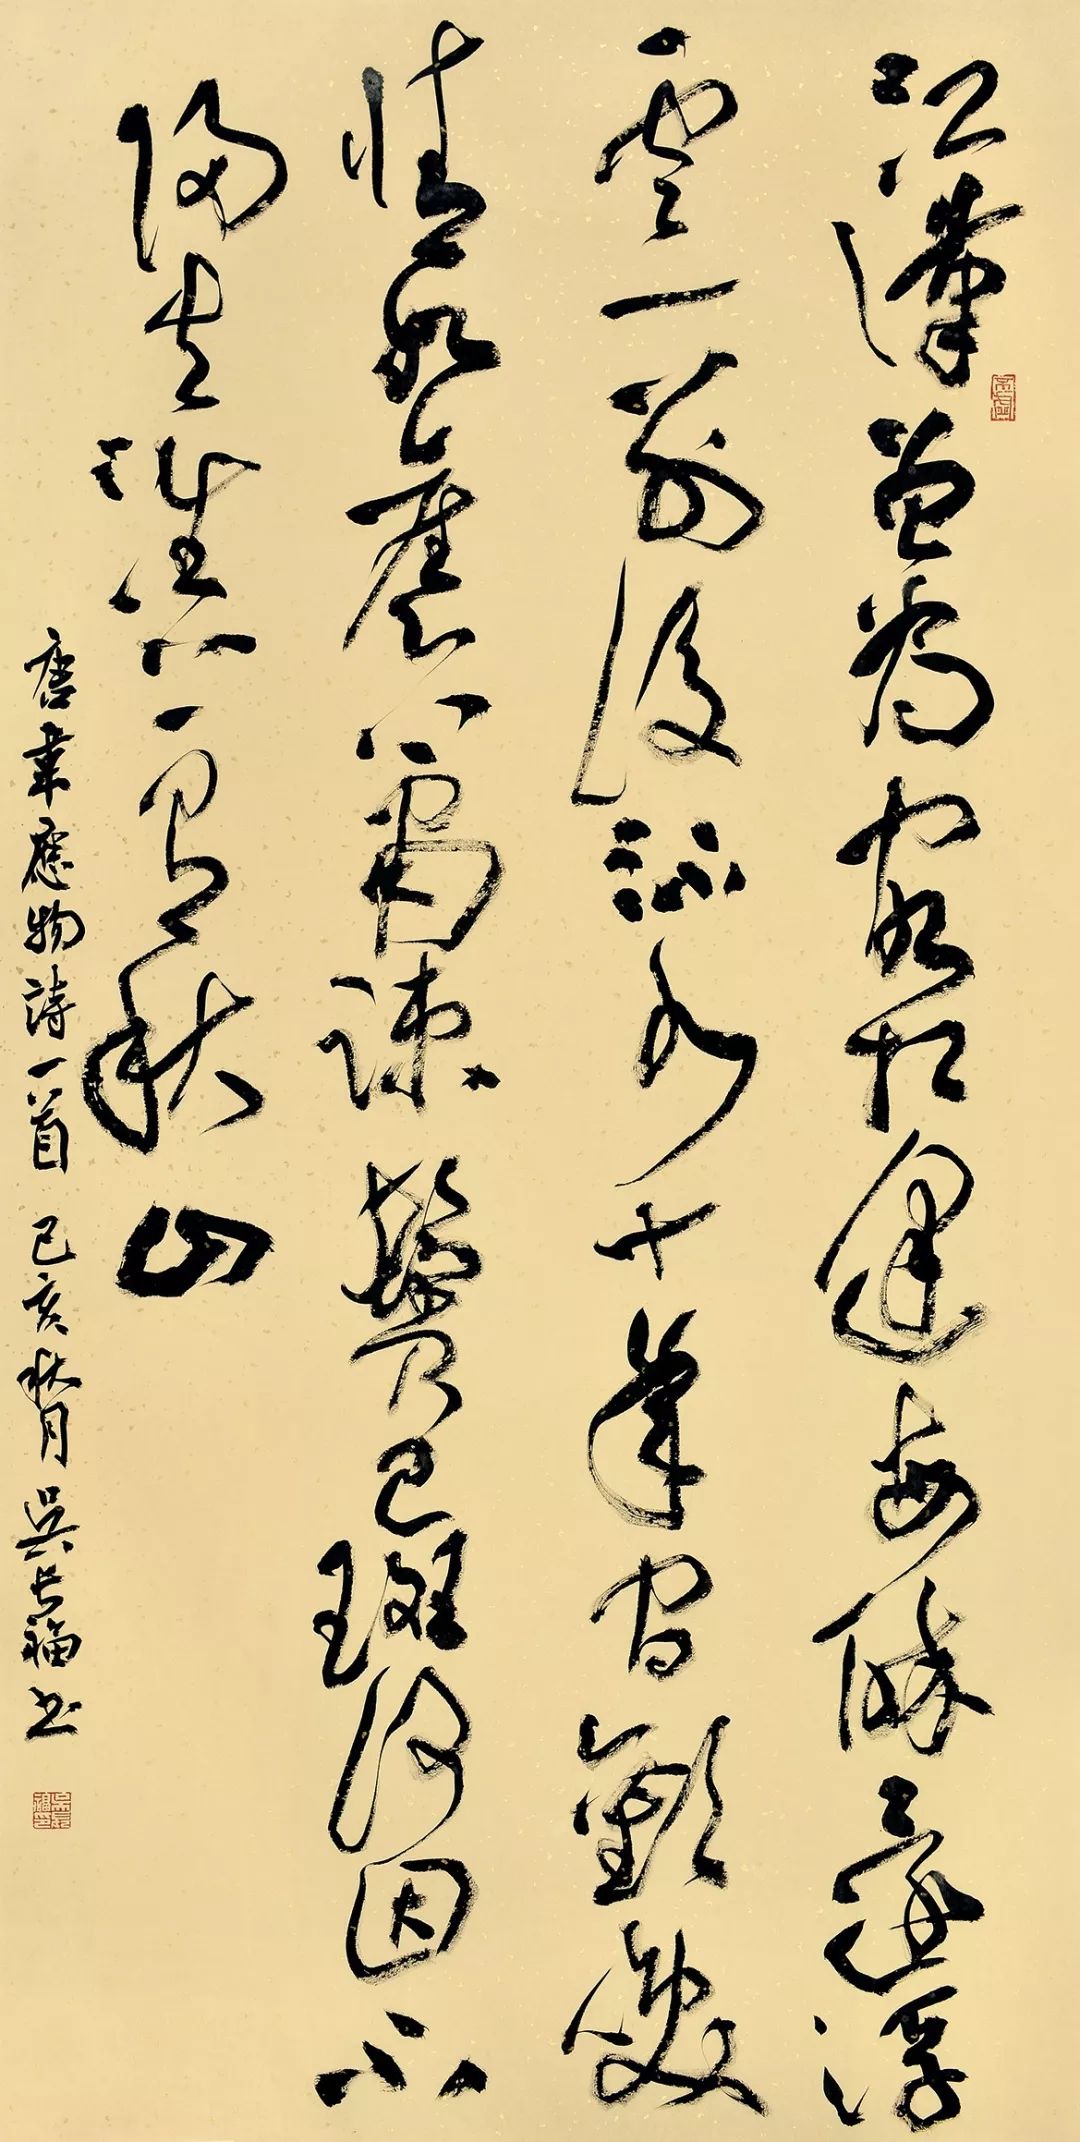 江漢曾為客相逢每醉還浮
雲一別後流水十年間歡笑
情如舊蕭疎鬢已斑何因不
歸去淮上有秋山
唐韋應物詩一首 己亥秋月 吳長福書